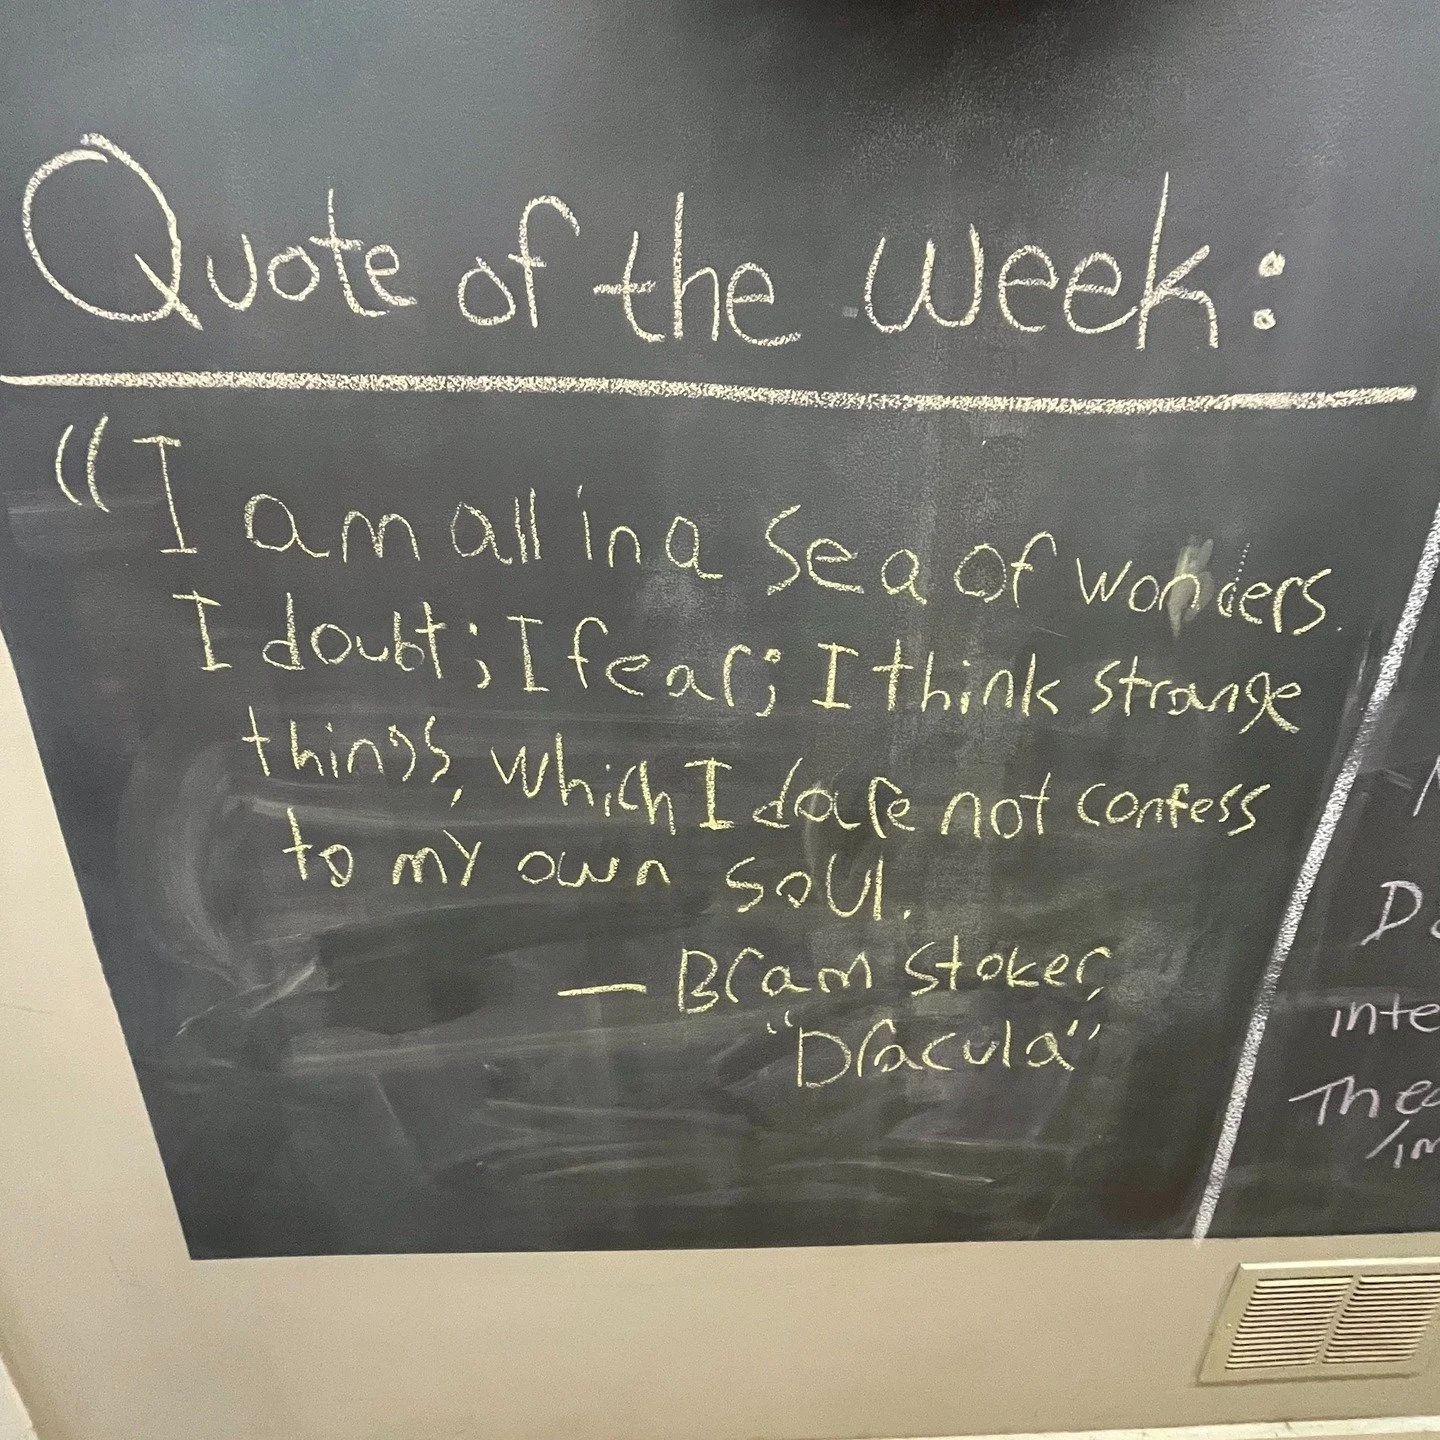 Quote of the week:
"I am all in a sea of wonders.
I doubt; I fear; I think strange
things, which I dare not confess
to my own soul.
— Bram Stoker,
"Dracula"